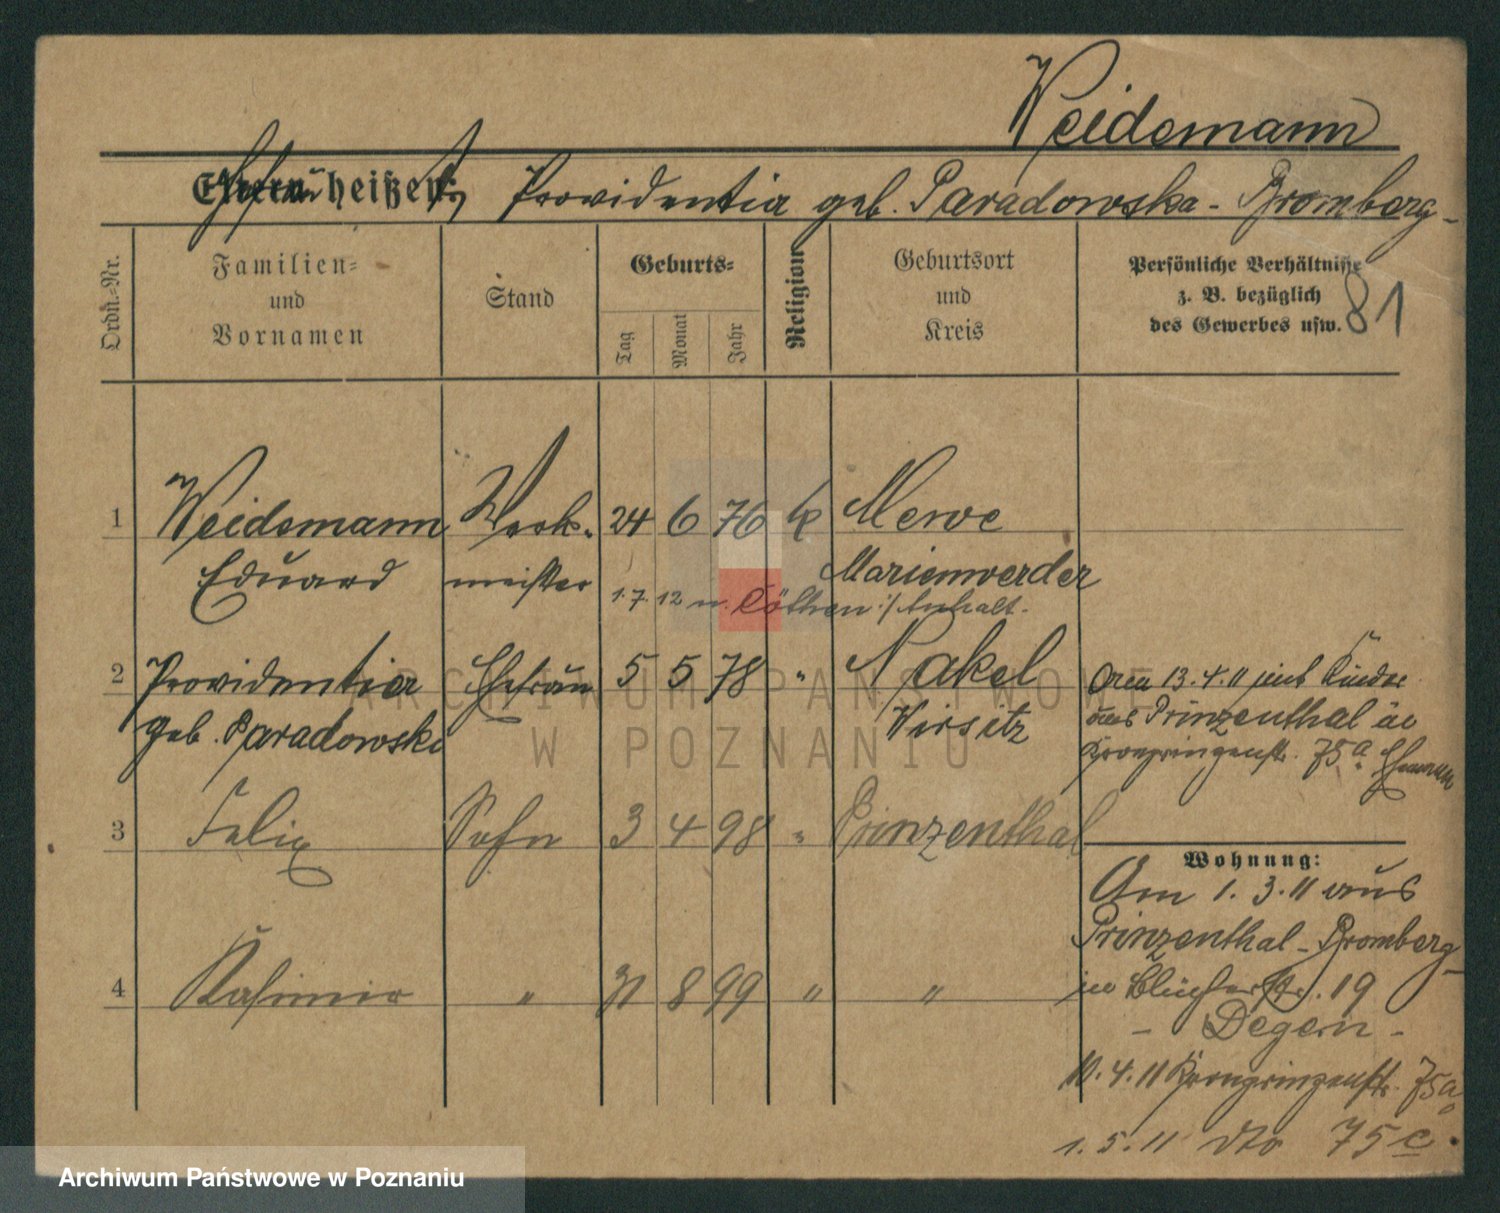 Weidemann
Eltern heißen: Providentia geb. Paradowska - Bromberg -
Ordn.-Nr.
Familien-
und
Vornamen
Stand
Geburts-
Tag
Monat
Jahr
Religion
Geburtsort
und
Kreis
Persönliche Verhältnisse
z. B. bezüglich
des Gewerbes usw.
81
1 Weidemann Werk- 24 6 76 k Mewe
Eduard meister Marienwerder
1.7.12 n. Cöthen i/Anhalt.
2 Providentia Ehefrau 5 5 78 " Nakel
geb. Paradowski Wirsitz
13.4.11 mit Kinder
aus Prinzenthal in
Kronprinzenstr. 75a Ehemann
3 Felix Sohn 3 4 98 " Prinzenthal
4 Kasimir " 31 8 99 " "
Wohnung:
Am 1.3.11 aus
Prinzenthal - Bromberg -
in Blücherstr. 19
- Degen -
10.4.11 Kronprinzenstr. 75a
1.5.11 dto 75c.
ARCHIWUM PAŃSTWOWE
W POZNANIU
Archiwum Państwowe w Poznaniu